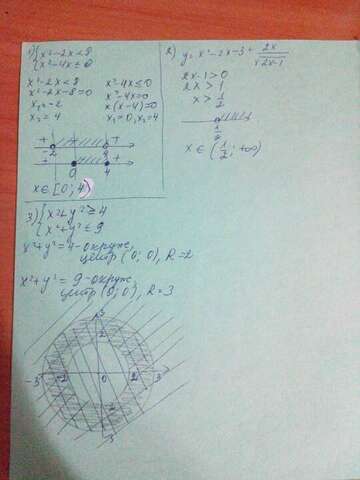 1) { x² - 2x < 8
{ x² - 4x ≤ 0
x² - 2x < 8
x² - 2x - 8 = 0
x₁ = -2
x₂ = 4
x² - 4x ≤ 0
x² - 4x = 0
x(x - 4) = 0
x₁ = 0, x₂ = 4
+ - +
-2 4
+ - +
0 4
x ∈ [0; 4)
2) y = x² - 2x - 3 + 2x/√2x-1
2x - 1 > 0
2x > 1
x > 1/2
1/2
x ∈ (1/2; +∞)
3) { x² + y² ≥ 4
{ x² + y² ≤ 9
x² + y² = 4 - окруж,
центр (0; 0), R = 2
x² + y² = 9 - окруж,
центр (0; 0), R = 3
3
2
-3 -2 0 2 3
-2
-3